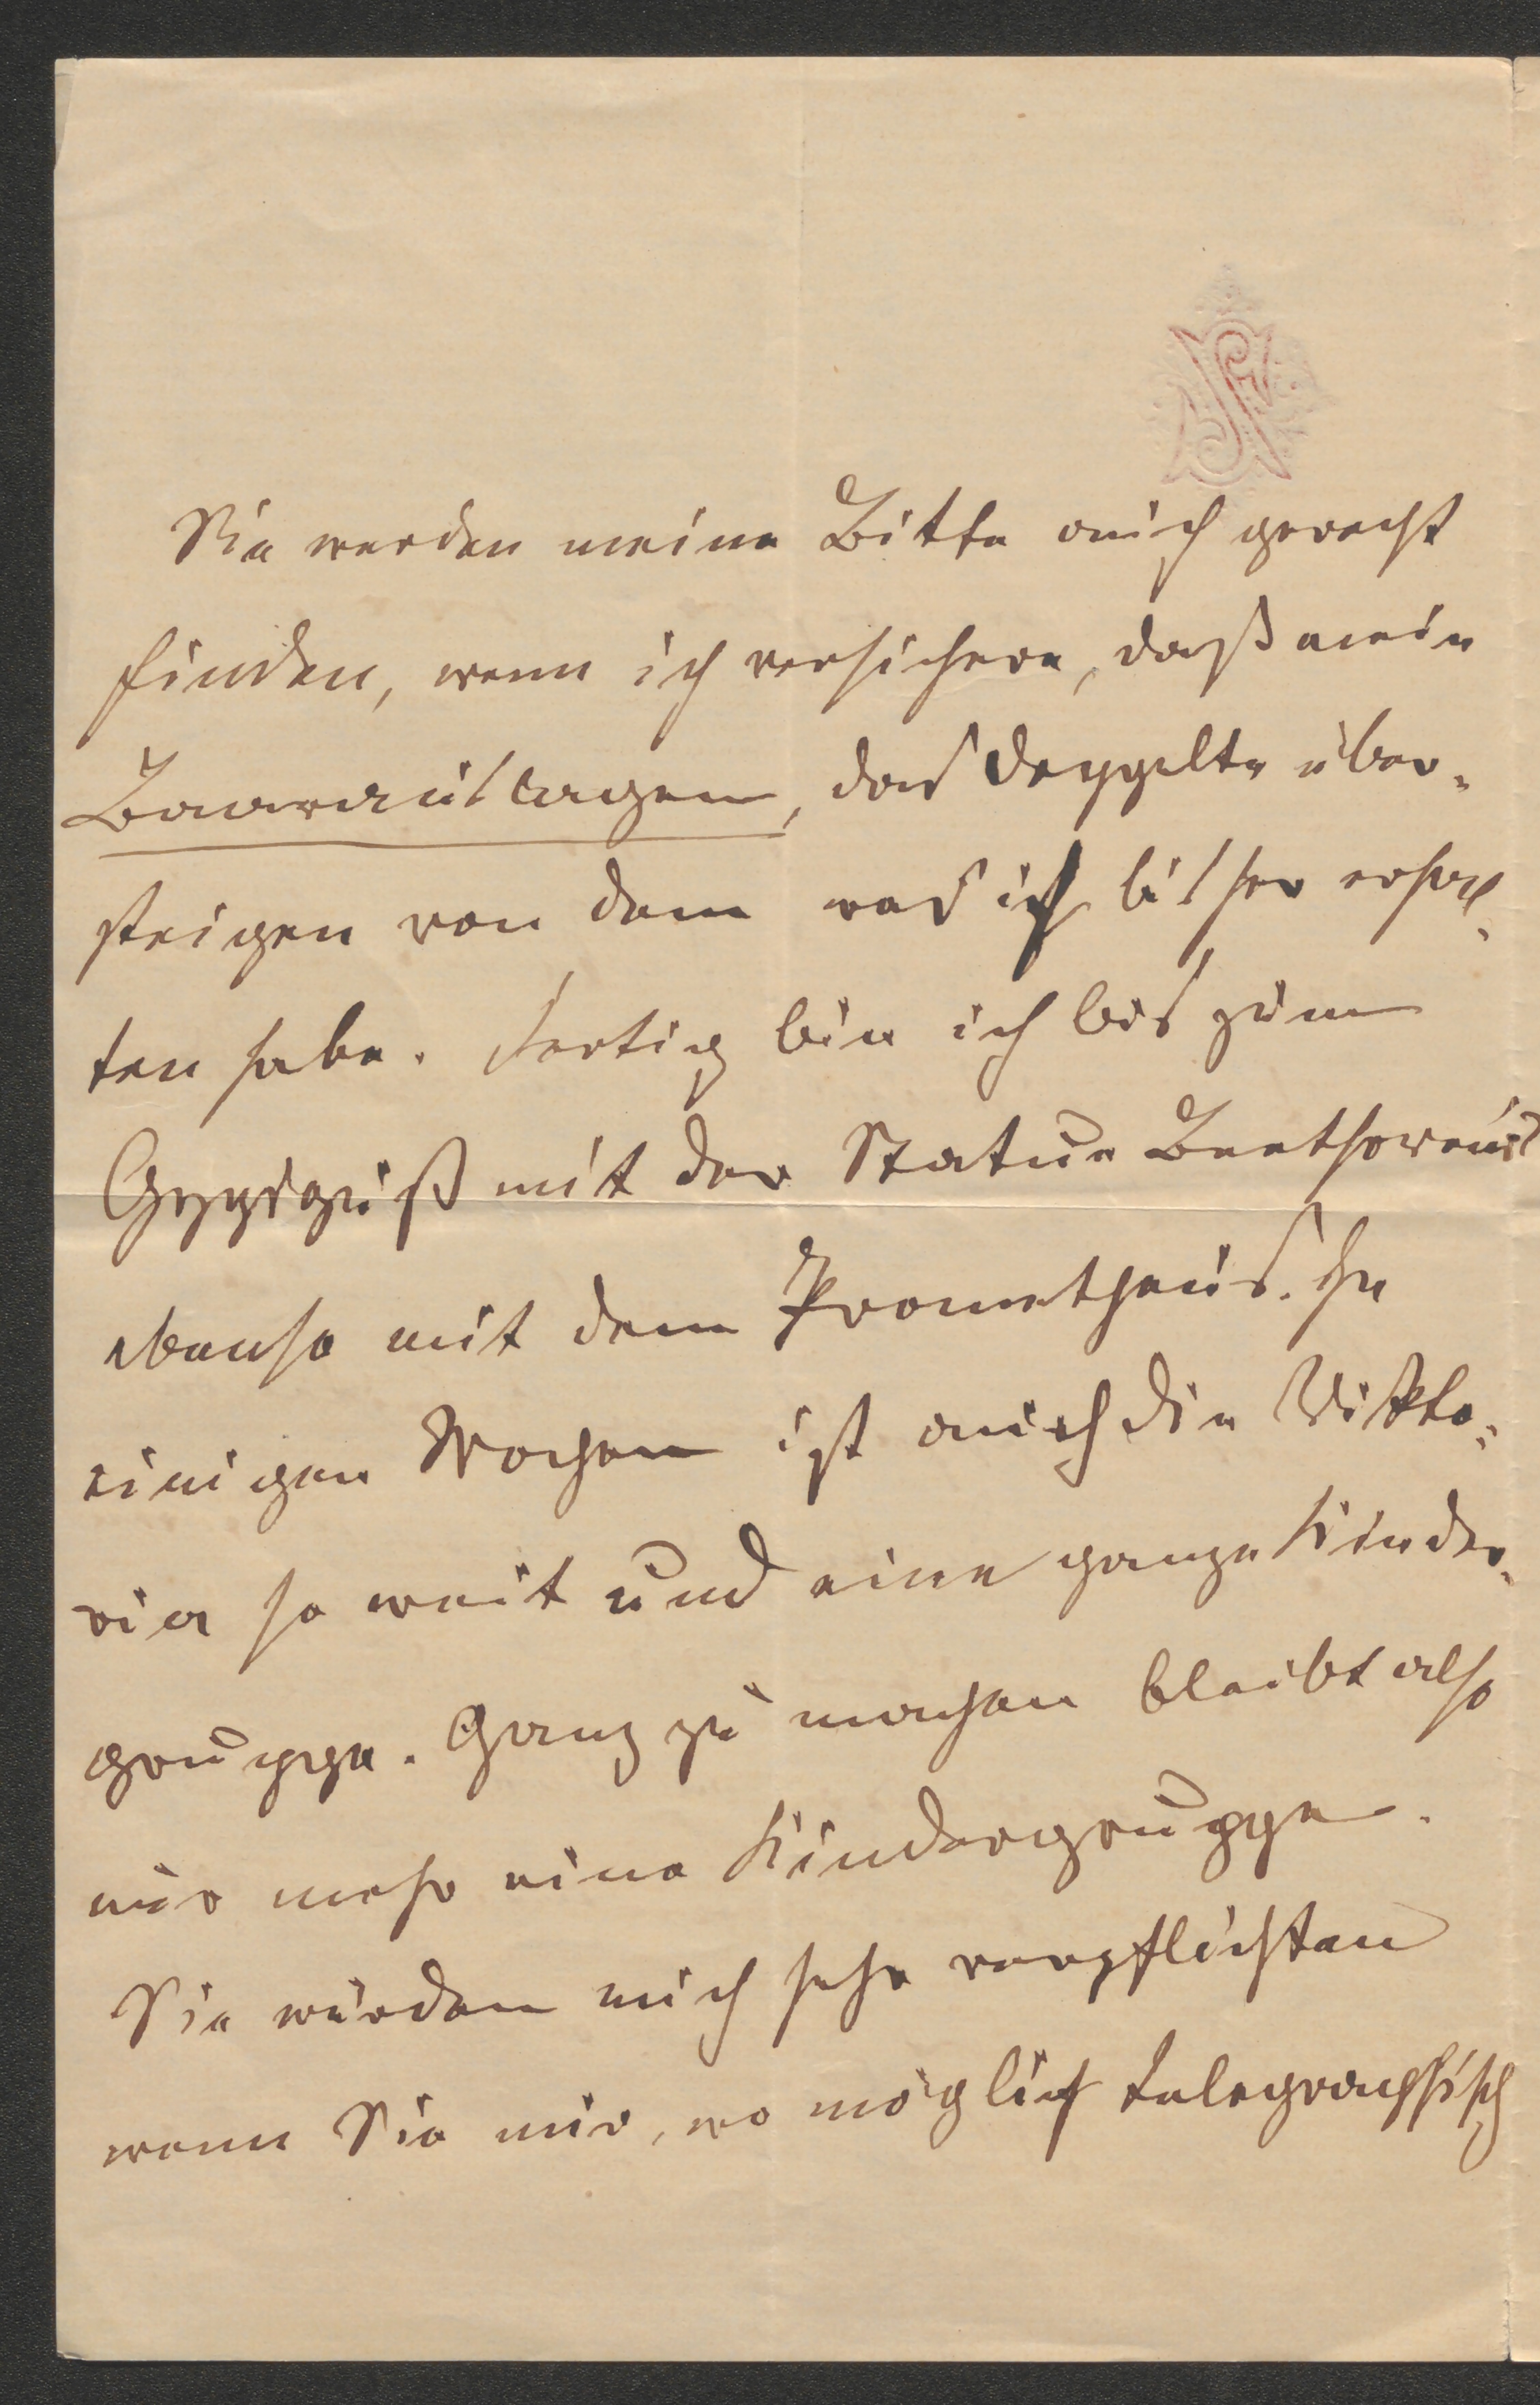 Sie werden meine Bitte auch gerecht
finden, wenn ich versichere, daß mein
Baarauslagen, das doppelte über-
steigen von dem was ich bisher erhal-
ten habe. Fertig bin ich bis zum
Gypsguß mit der Statue Beethoven's
ebenso mit dem Prometheus. In
einigen Wochen ist auch die Vikto-
ria so weit und eine ganze Kinder-
gruppe. Ganz zu machen bleibt also
nur mehr eine Kindergruppe.
Sie würden mich sehr verpflichten
wenn Sie mir, wo möglich telegraphisch